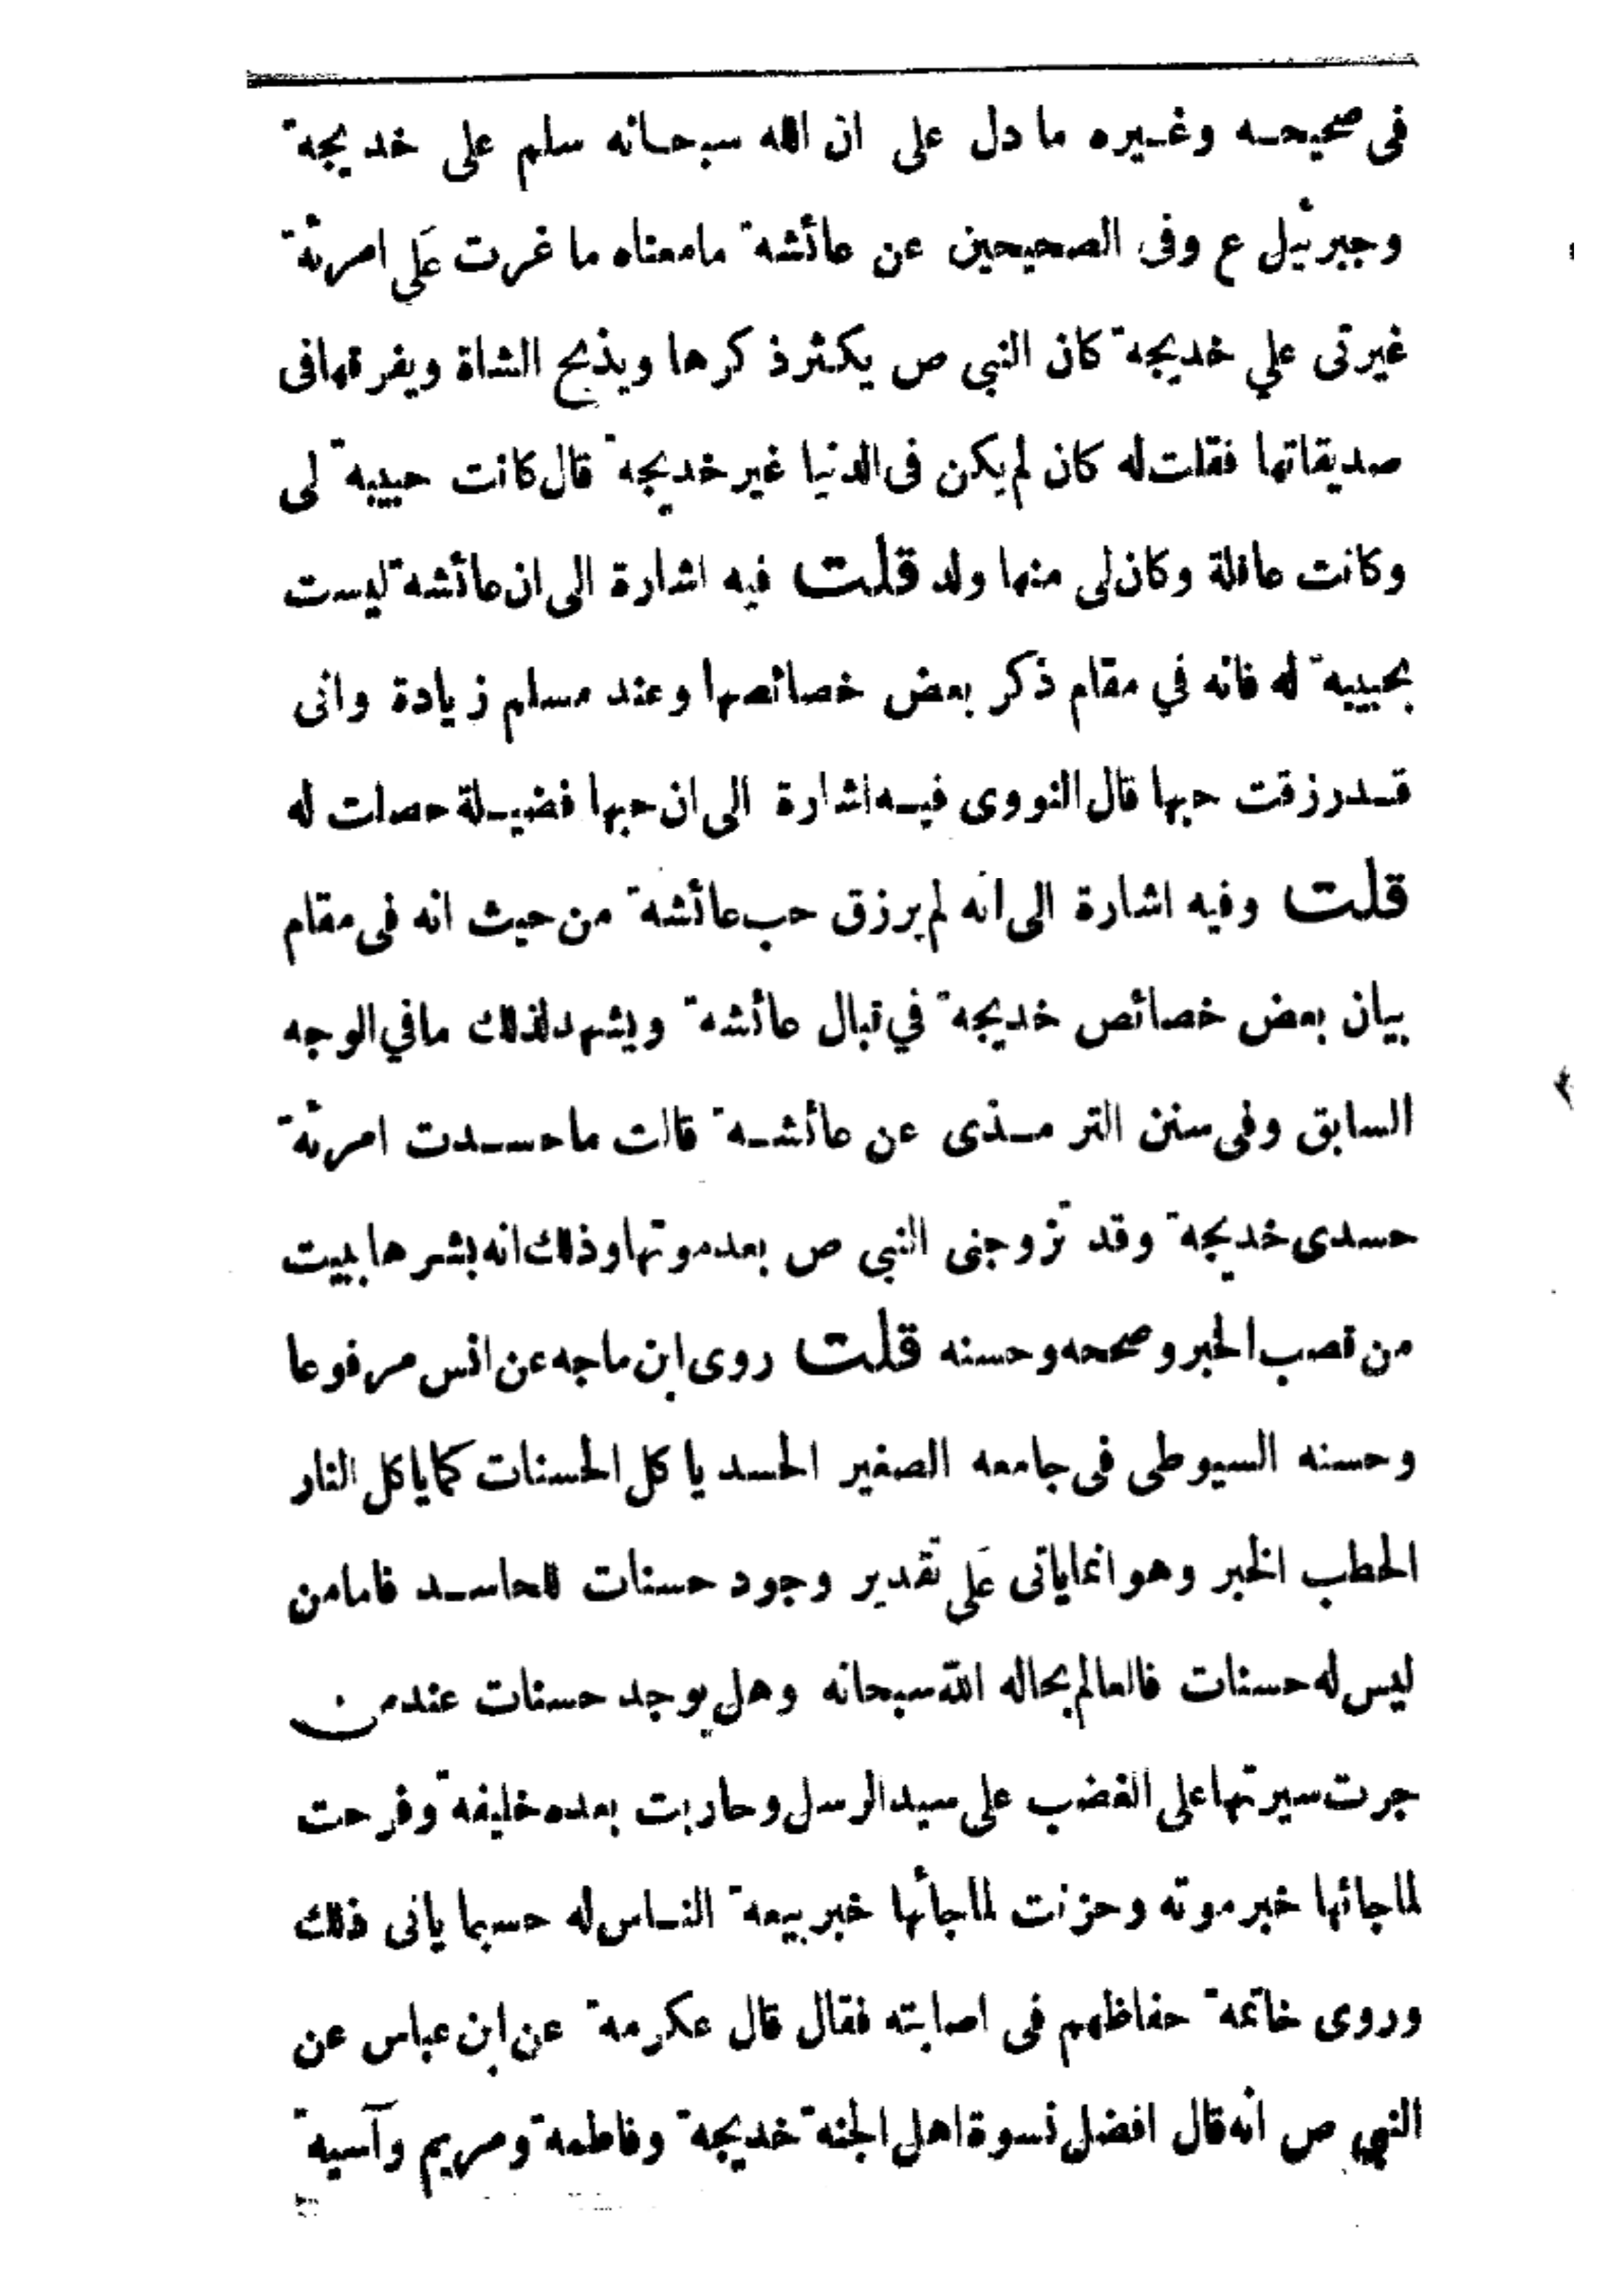 فى صحيحه وغيره ما دل على ان الله سبحانه سلم على خديجة
وجبرئيل ع وفى الصحيحين عن عائشة ما معناه ما غرت على امرئة
غيرتى على خديجة كان النبى ص يكثر ذكرها ويذبح الشاة ويفرقها فى
صديقاتها فقلت له كان لم يكن فى الدنيا غير خديجة قال كانت حبيبة لى
وكانت عاقلة وكان لى منها ولد قلت فيه اشارة الى ان عائشة ليست
بحبيبة له فانه في مقام ذكر بعض خصائصها وعند مسلم زيادة وانى
قد رزقت حبها قال النووى فيه اشارة الى ان حبها فضيلة حصلت له
قلت وفيه اشارة الى انه لم يرزق حب عائشة من حيث انه فى مقام
بيان بعض خصائص خديجة في قبال عائشة ويشهد لذلك ما في الوجه
السابق وفى سنن الترمذى عن عائشة قالت ما حسدت امرئة
حسدى خديجة وقد تزوجنى النبى ص بعد موتها وذلك انه بشرها ببيت
من قصب الخبر وصححه وحسنه قلت روى ابن ماجه عن انس مرفوعا
وحسنه السيوطى فى جامعه الصغير الحسد ياكل الحسنات كما ياكل النار
الحطب الخبر وهو انما ياتى على تقدير وجود حسنات للحاسد فاما من
ليس له حسنات فالعالم بحاله الله سبحانه وهل يوجد حسنات عند من
جرت سيرتها على الغضب على سيد الرسل وحاربت بعده خليفة وفرحت
لما جائها خبر موته وحزنت لما جأئها خبر بيعة الناس له حسبما ياتى ذلك
وروى خاتمة حفاظهم فى اصابته فقال قال عكرمة عن ابن عباس عن
النبى ص انه قال افضل نسوة اهل الجنة خديجة وفاطمة ومريم وآسية